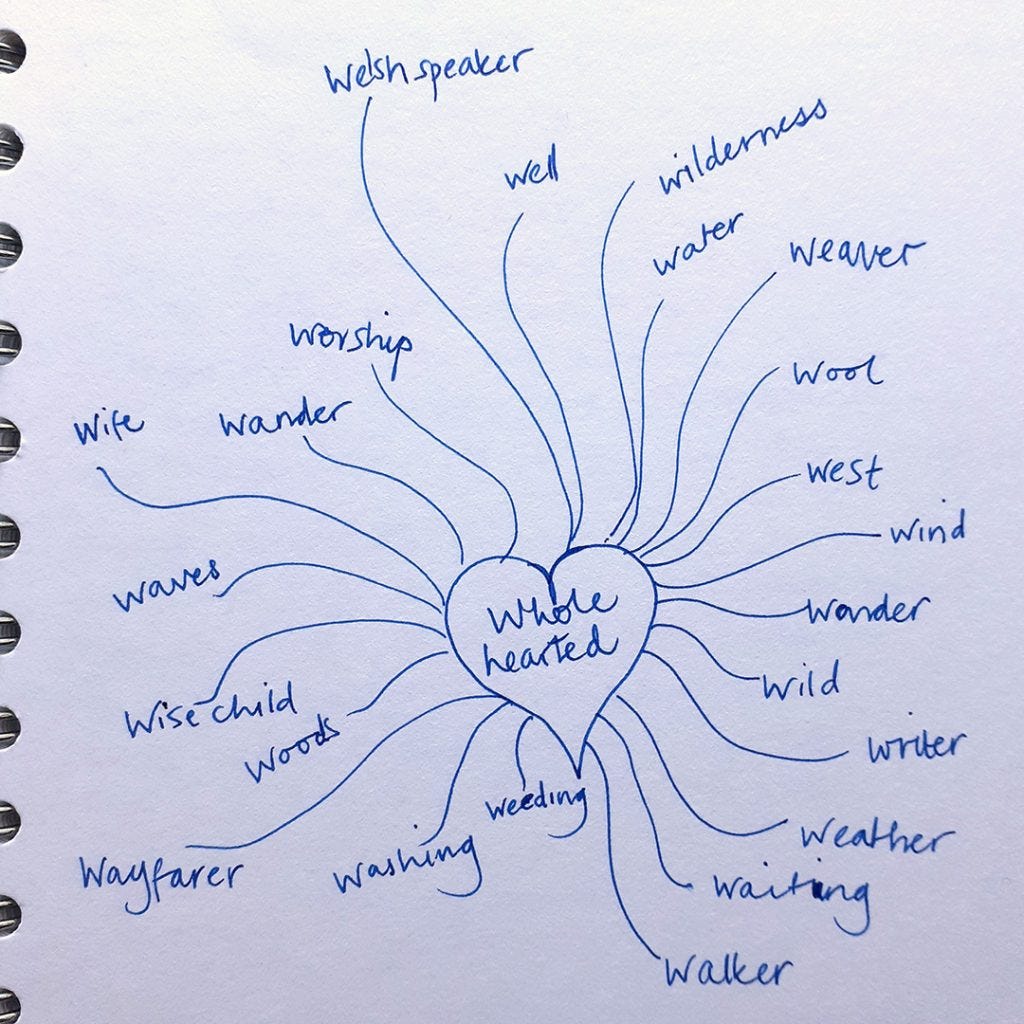 Welsh speaker
well
wilderness
water
weaver
worship
wool
wife
wander
west
wind
waves
Whole
hearted
wonder
wild
wise-child
woods
writer
weeding
weather
wayfarer
washing
waiting
walker